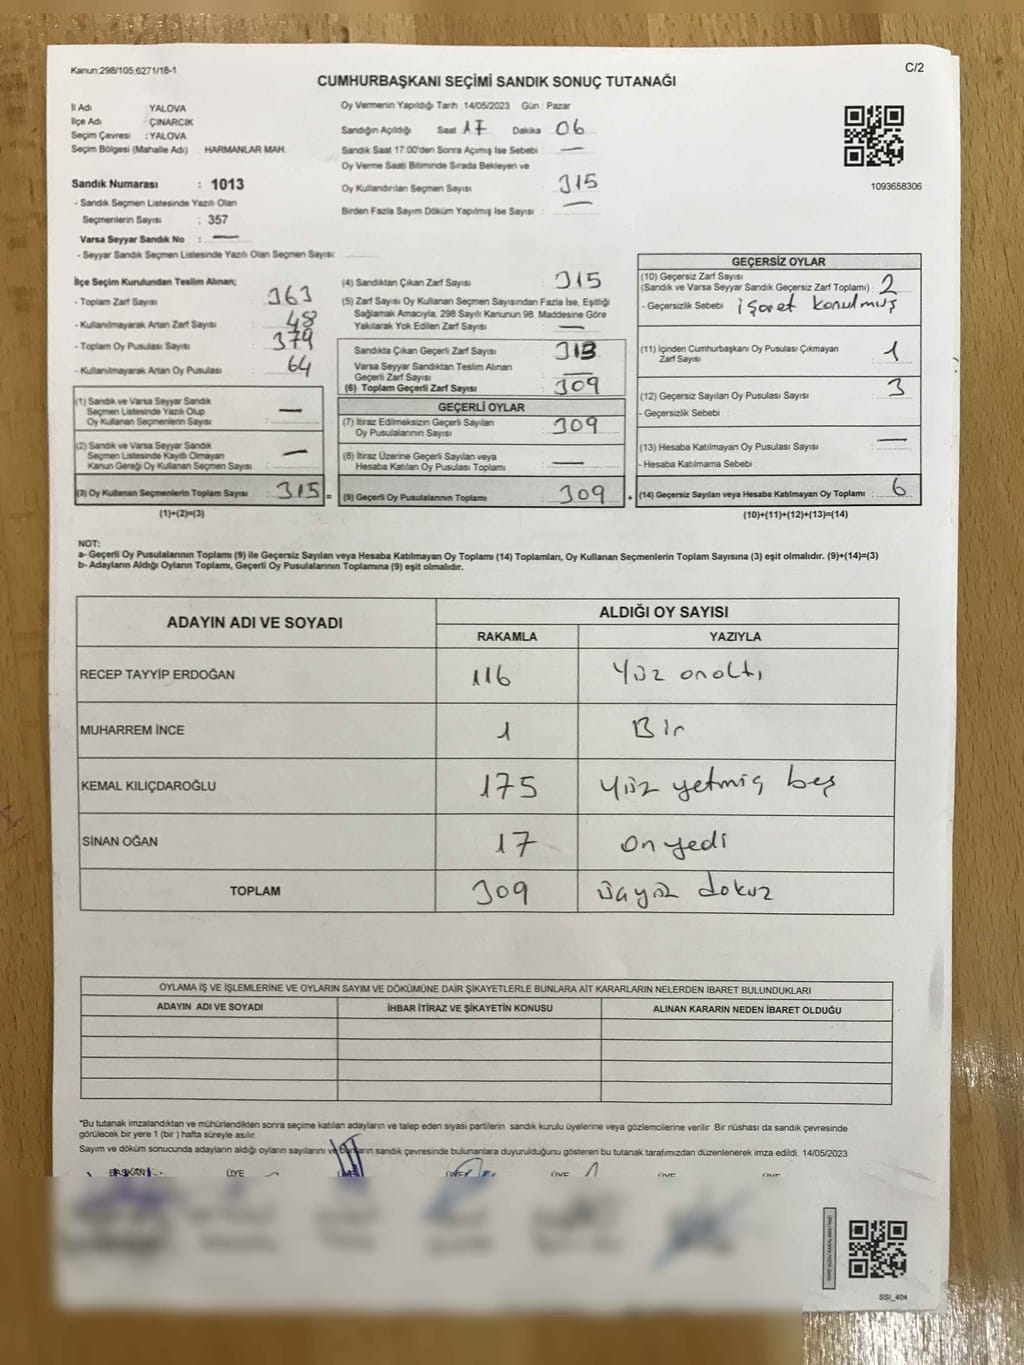 Kanun:298/105,6271/18-1
C/2
CUMHURBAŞKANI SEÇİMİ SANDIK SONUÇ TUTANAĞI
İl Adı : YALOVA
İlçe Adı : ÇINARCIK
Seçim Çevresi : YALOVA
Seçim Bölgesi (Mahalle Adı) : HARMANLAR MAH.
Sandık Numarası : 1013
- Sandık Seçmen Listesinde Yazılı Olan
Seçmenlerin Sayısı : 357
Varsa Seyyar Sandık No : —
- Seyyar Sandık Seçmen Listesinde Yazılı Olan Seçmen Sayısı:
Oy Vermenin Yapıldığı Tarih :14/05/2023 Gün : Pazar
Sandığın Açıldığı Saat 17 Dakika 06
Sandık Saat 17:00'den Sonra Açımış İse Sebebi : —
Oy Verme Saati Bitiminde Sırada Bekleyen ve
Oy Kullandırılan Seçmen Sayısı : 315
Birden Fazla Sayım Döküm Yapılmış İse Sayısı : —
1093658306
İlçe Seçim Kurulundan Teslim Alınan;
- Toplam Zarf Sayısı : 363
- Kullanılmayarak Artan Zarf Sayısı : 48
- Toplam Oy Pusulası Sayısı : 379
- Kullanılmayarak Artan Oy Pusulası : 64
(1) Sandık ve Varsa Seyyar Sandık
Seçmen Listesinde Yazılı Olup
Oy Kullanan Seçmenlerin Sayısı : —
(2) Sandık ve Varsa Seyyar Sandık
Seçmen Listesinde Kayıtlı Olmayan
Kanun Gereği Oy Kullanan Seçmen Sayısı : —
(3) Oy Kullanan Seçmenlerin Toplam Sayısı : 315 =
(1)+(2)=(3)
(4) Sandıktan Çıkan Zarf Sayısı : 315
(5) Zarf Sayısı Oy Kullanan Seçmen Sayısından Fazla İse, Eşitliği
Sağlamak Amacıyla, 298 Sayılı Kanunun 98. Maddesine Göre
Yakılarak Yok Edilen Zarf Sayısı : —
Sandıkta Çıkan Geçerli Zarf Sayısı : 313
Varsa Seyyar Sandıktan Teslim Alınan
Geçerli Zarf Sayısı : —
(6) Toplam Geçerli Zarf Sayısı : 309
GEÇERLİ OYLAR
(7) İtiraz Edilmeksizin Geçerli Sayılan
Oy Pusulalarının Sayısı : 309
(8) İtiraz Üzerine Geçerli Sayılan veya
Hesaba Katılan Oy Pusulası Toplamı : —
(9) Geçerli Oy Pusulalarının Toplamı : 309 +
GEÇERSİZ OYLAR
(10) Geçersiz Zarf Sayısı
(Sandık ve Varsa Seyyar Sandık Geçersiz Zarf Toplamı) : 2
- Geçersizlik Sebebi : işaret konulmuş
(11) İçinden Cumhurbaşkanı Oy Pusulası Çıkmayan
Zarf Sayısı : 1
(12) Geçersiz Sayılan Oy Pusulası Sayısı : 3
- Geçersizlik Sebebi :
(13) Hesaba Katılmayan Oy Pusulası Sayısı : —
- Hesaba Katılmama Sebebi :
(14) Geçersiz Sayılan veya Hesaba Katılmayan Oy Toplamı : 6
(10)+(11)+(12)+(13)=(14)
NOT:
a- Geçerli Oy Pusulalarının Toplamı (9) ile Geçersiz Sayılan veya Hesaba Katılmayan Oy Toplamı (14) Toplamları, Oy Kullanan Seçmenlerin Toplam Sayısına (3) eşit olmalıdır. (9)+(14)=(3)
b- Adayların Aldığı Oyların Toplamı, Geçerli Oy Pusulalarının Toplamına (9) eşit olmalıdır.
ADAYIN ADI VE SOYADI
ALDIĞI OY SAYISI
RAKAMLA YAZIYLA
RECEP TAYYİP ERDOĞAN 116 Yüz onaltı
MUHARREM İNCE 1 Bir
KEMAL KILIÇDAROĞLU 175 Yüz yetmiş beş
SİNAN OĞAN 17 On yedi
TOPLAM 309 üçyüz dokuz
OYLAMA İŞ VE İŞLEMLERİNE VE OYLARIN SAYIM VE DÖKÜMÜNE DAİR ŞİKAYETLERLE BUNLARA AİT KARARLARIN NELERDEN İBARET BULUNDUKLARI
ADAYIN ADI VE SOYADI İHBAR İTİRAZ VE ŞİKAYETİN KONUSU ALINAN KARARIN NEDEN İBARET OLDUĞU
*Bu tutanak imzalandıktan ve mühürlendikten sonra seçime katılan adayların ve talep eden siyasi partilerin sandık kurulu üyelerine veya gözlemcilerine verilir. Bir nüshası da sandık çevresinde
görülecek bir yere 1 (bir ) hafta süreyle asılır.
Sayım ve döküm sonucunda adayların aldığı oyların sayılarını ve bunların sandık çevresinde bulunanlara duyurulduğunu gösteren bu tutanak tarafımızdan düzenlenerek imza edildi. 14/05/2023
BAŞKAN ÜYE ÜYE ÜYE ÜYE ÜYE ÜYE
SSİ_404